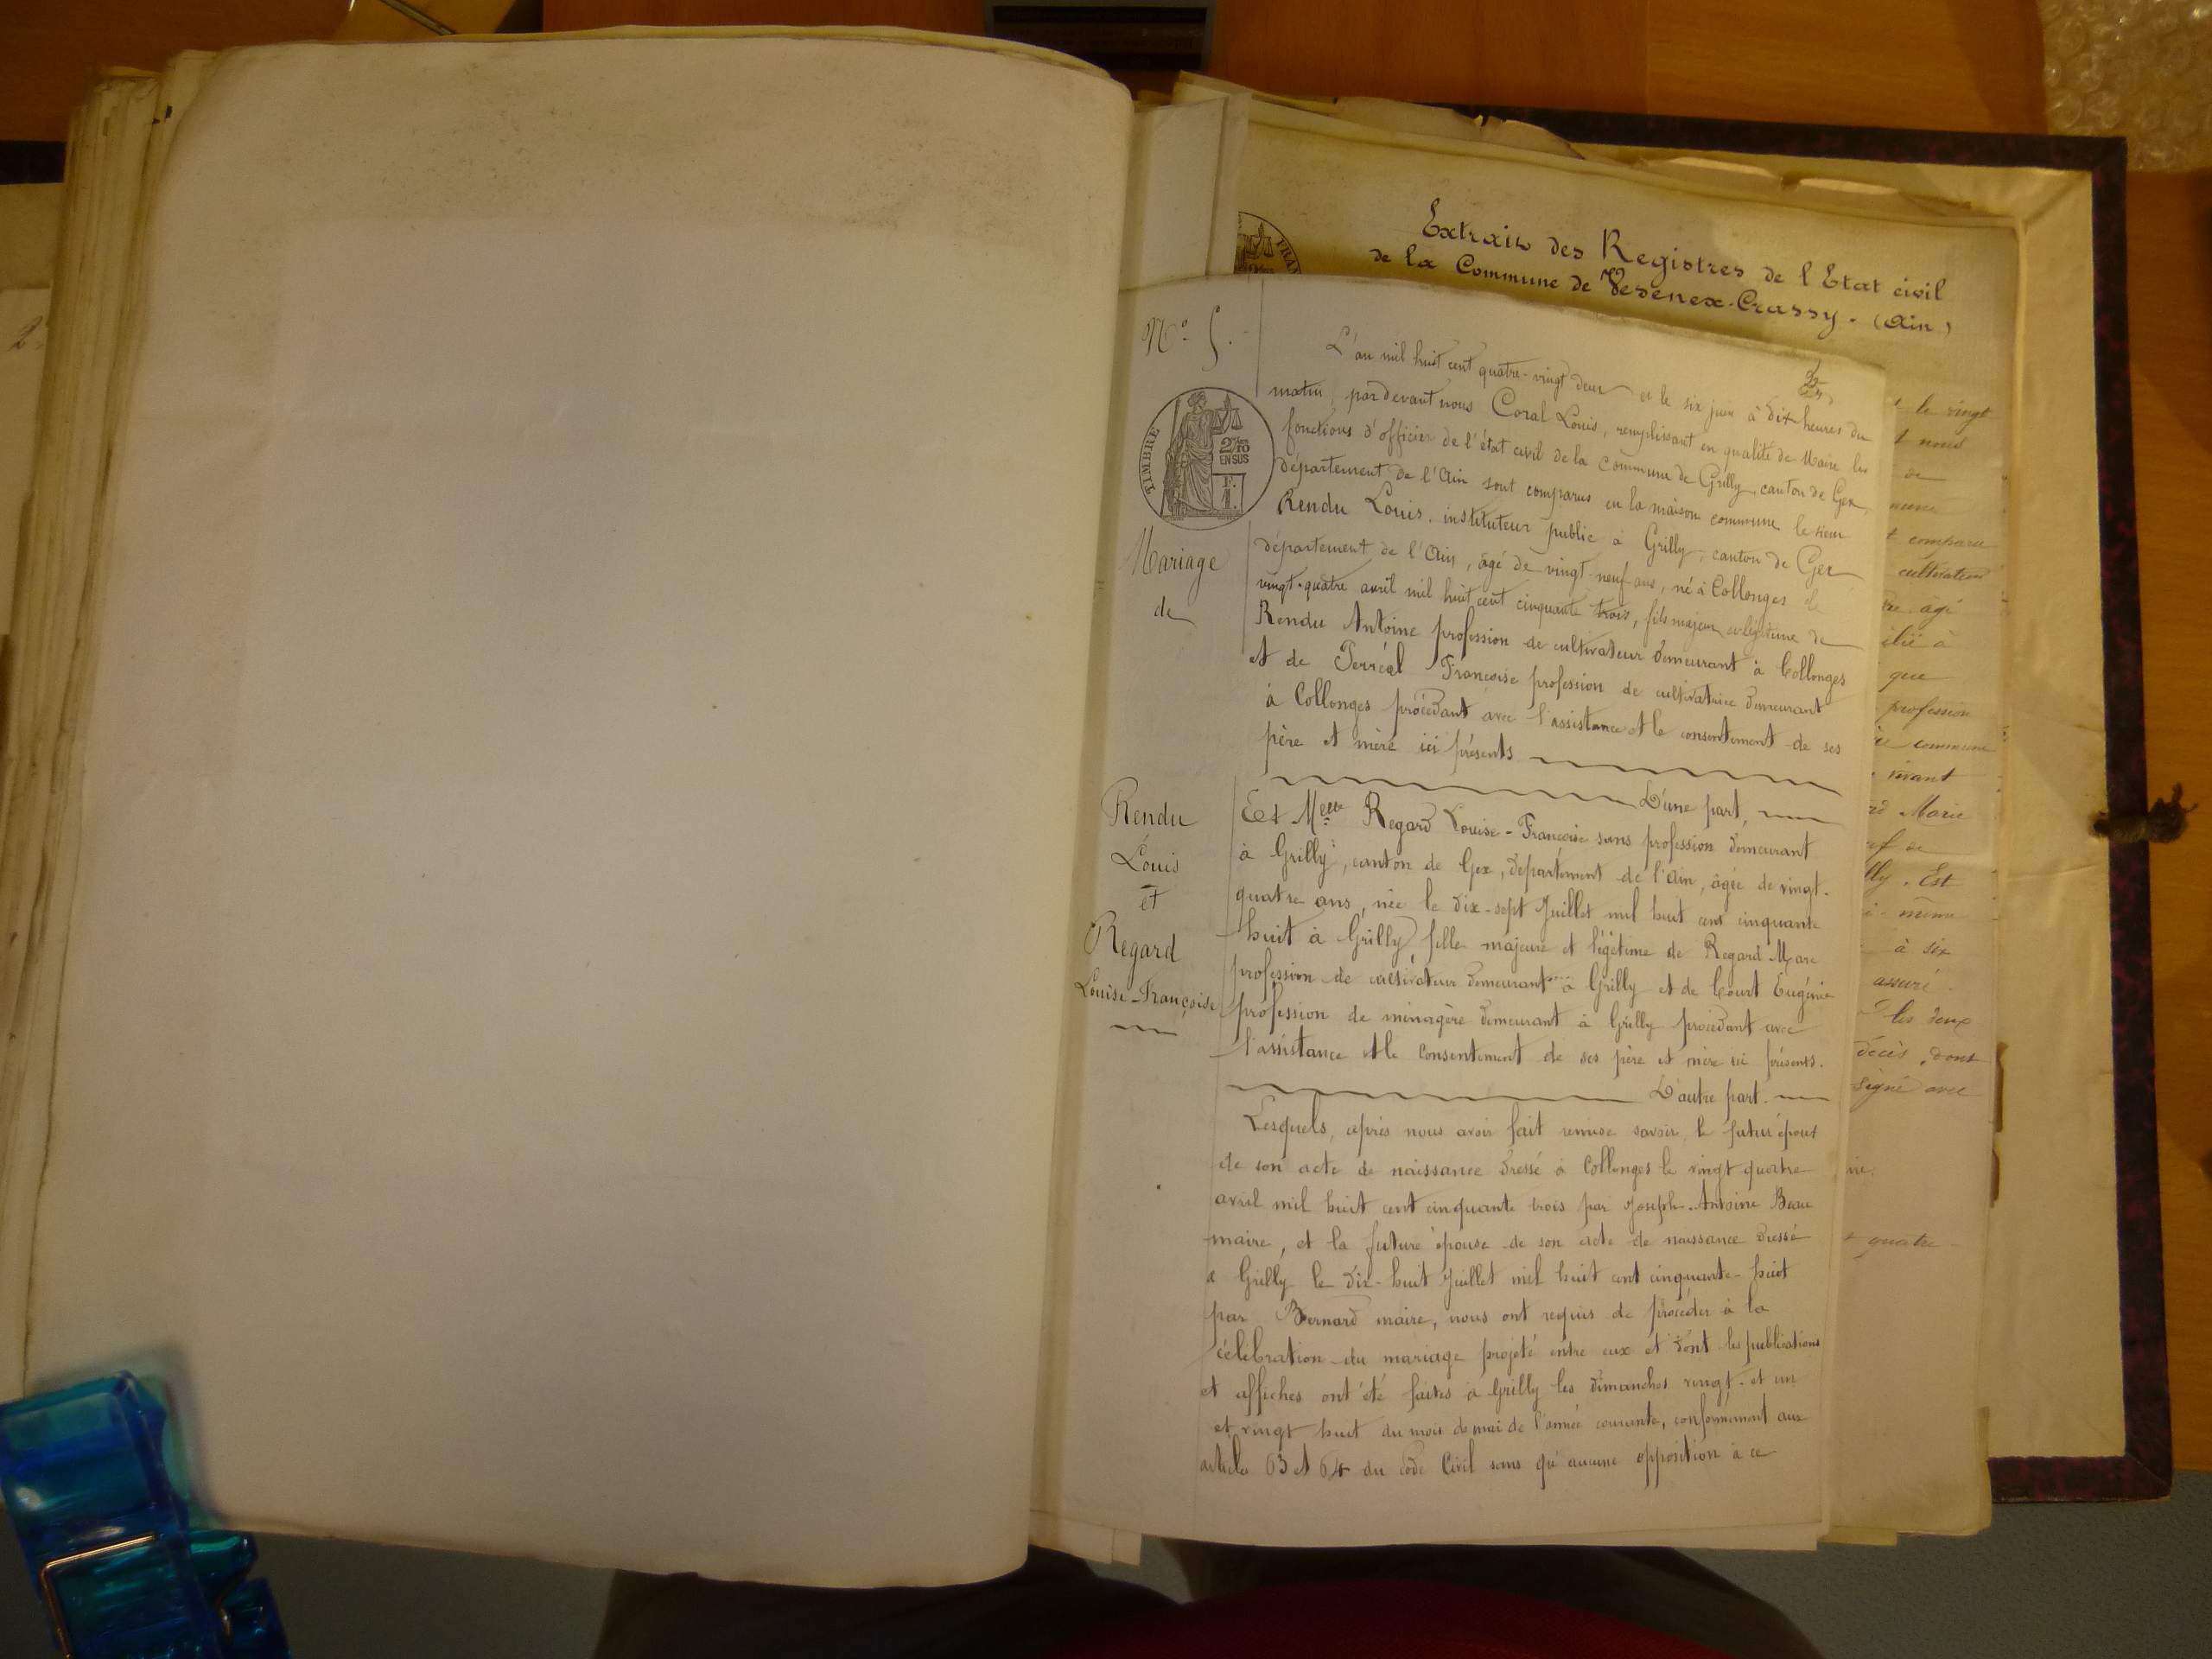 Extrait des Registres de l'Etat civil
de la Commune de Vesenex-Crassy. (Ain)
N° 5.
TIMBRE
2/10
EN SUS
F.
1.
FRAN
Mariage
de
Rendu
Louis
et
Regard
Louise-Françoise
L'an mil huit cent quatre-vingt deux et le six juin à dix heures du
matin, pardevant nous Coral Louis, remplissant en qualité de Maire les
fonctions d'officier de l'état civil de la Commune de Grilly, canton de Gex,
département de l'Ain sont comparus en la maison commune le sieur
Rendu Louis, instituteur public à Grilly, canton de Gex
département de l'Ain, âgé de vingt-neuf ans, né à Collonges le
vingt-quatre avril mil huit cent cinquante trois, fils majeur et légitime de
Rendu Antoine profession de cultivateur demeurant à Collonges
et de Perréal Françoise profession de cultivatrice demeurant
à Collonges procédant avec l'assistance et le consentement de ses
père et mère ici présents
D'une part,
Et Melle Regard Louise-Françoise sans profession demeurant
à Grilly, canton de Gex, département de l'Ain, âgée de vingt-
quatre ans, née le dix-sept Juillet mil huit cent cinquante
huit à Grilly fille majeure et légitime de Regard Marc
profession de cultivateur demeurant à Grilly et de Court Eugénie
profession de ménagère demeurant à Grilly procédant avec
l'assistance et le consentement de ses père et mère ici présents.
D'autre part.
Lesquels, après nous avoir fait remise savoir, le futur époux
de son acte de naissance dressé à Collonges le vingt quatre
avril mil huit cent cinquante trois par Joseph-Antoine Beau
maire, et la future épouse de son acte de naissance dressé
à Grilly le dix-huit Juillet mil huit cent cinquante-huit
par Bernard maire, nous ont requis de procéder à la
célébration du mariage projeté entre eux et dont les publications
et affiches ont été faites à Grilly les dimanches vingt-et un
et vingt huit du mois de mai de l'année courante, conformément aux
articles 63 et 64 du code Civil sans qu'aucune opposition à ce
le vingt
nous
de
comparu
cultivateur
âgé
à
que
profession
commune
vivant
Marie
de
Est
même
à six
assuré
les deux
décès, dont
signé avec
quatre